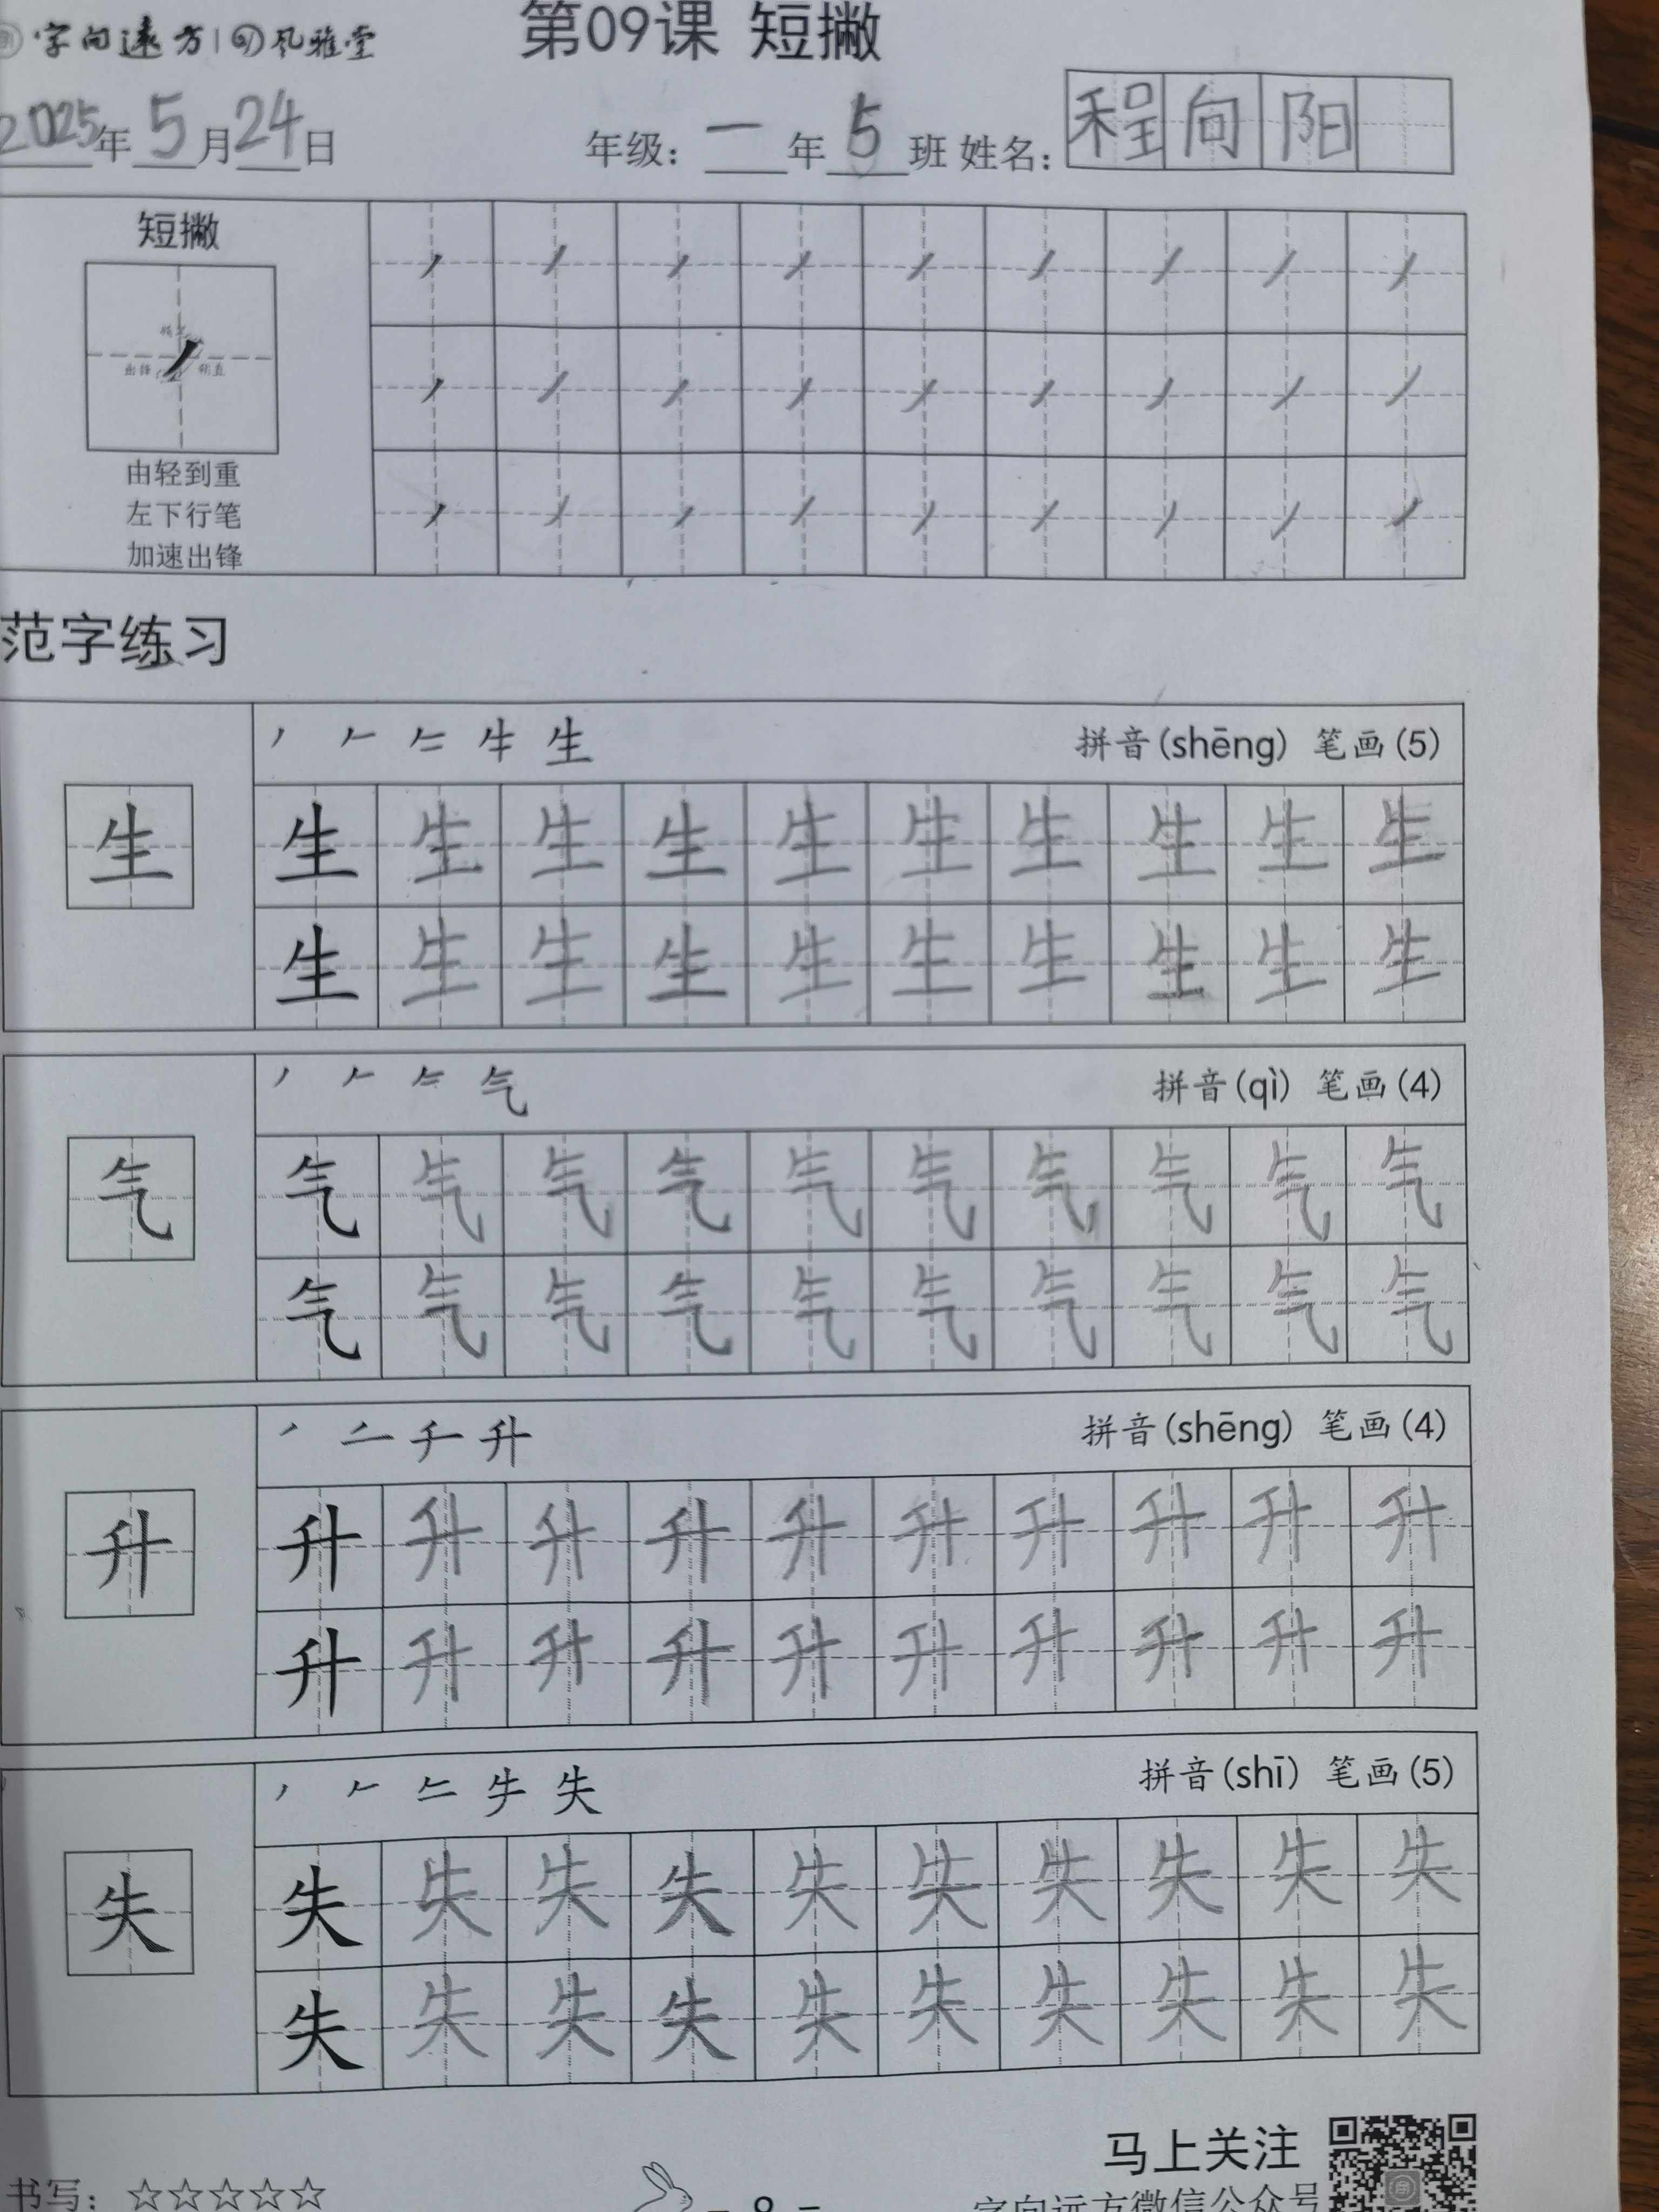 字向远方|风雅堂
第09课 短撇
2025年5月24日 年级：一年5班 姓名：程向阳
短撇
稍直
出锋
由轻到重
左下行笔
加速出锋
范字练习
丿 𠂉 生 拼音(shēng) 笔画(5)
生 生 生 生 生 生 生 生 生 生 生
生 生 生 生 生 生 生 生 生 生
丿 𠂉 气 拼音(qì) 笔画(4)
气 气 气 气 气 气 气 气 气 气 气
气 气 气 气 气 气 气 气 气 气
丿 升 拼音(shēng) 笔画(4)
升 升 升 升 升 升 升 升 升 升 升
升 升 升 升 升 升 升 升 升 升
丿 𠂉 失 拼音(shī) 笔画(5)
失 失 失 失 失 失 失 失 失 失 失
失 失 失 失 失 失 失 失 失 失
马上关注
书写：☆☆☆☆☆ - 9 - 字向远方微信公众号